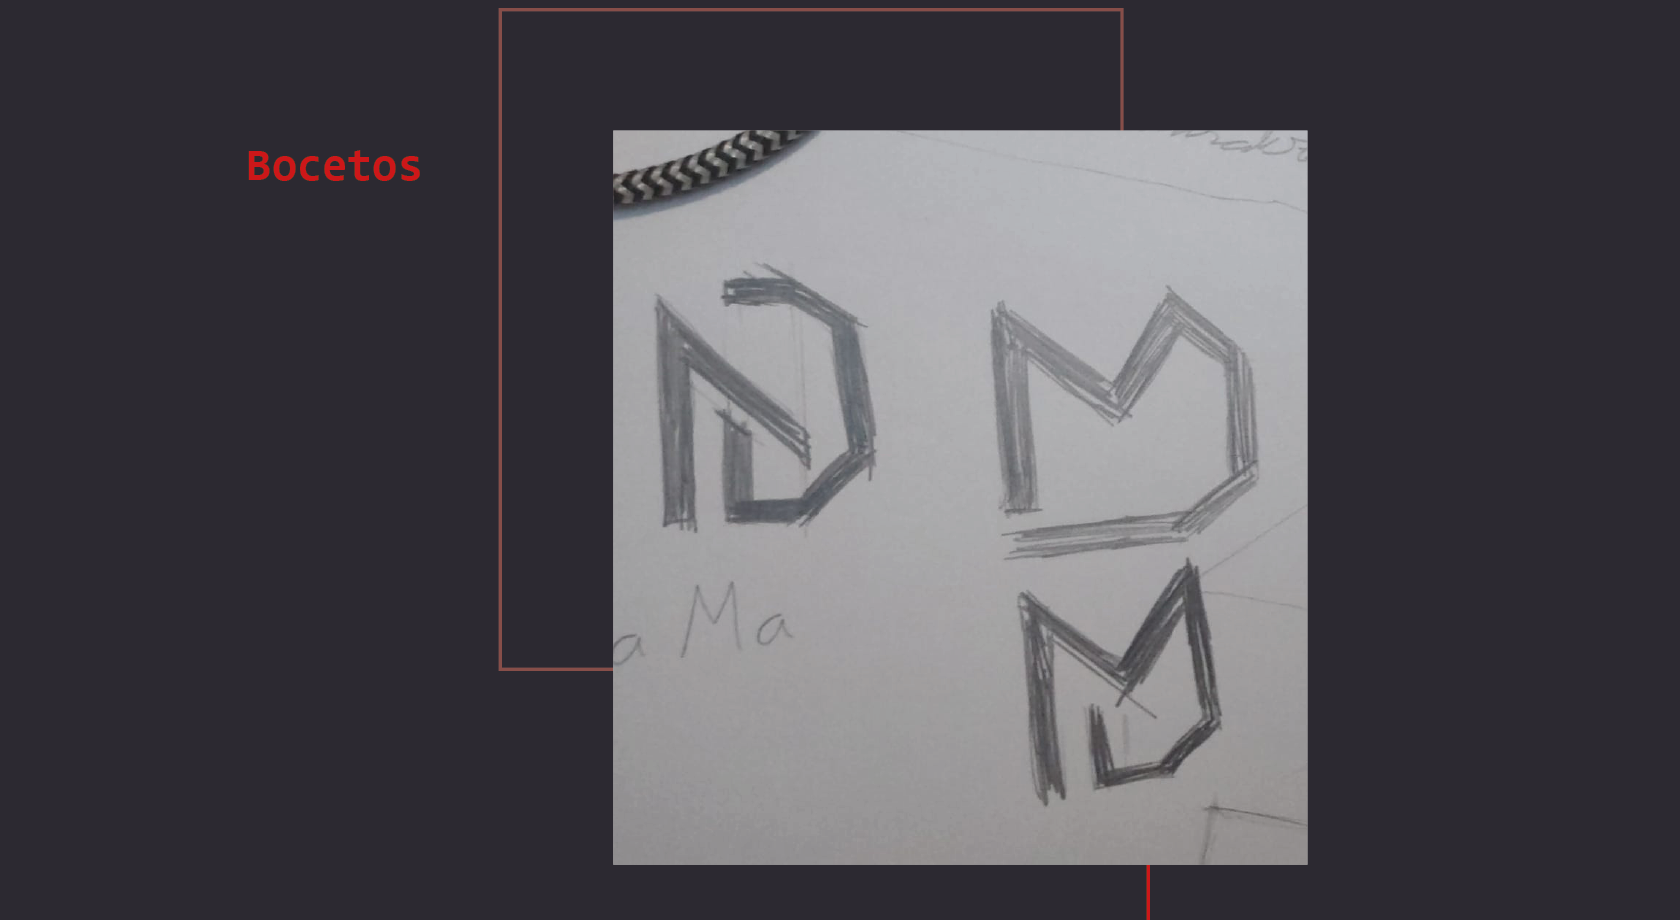 Bocetos
a Ma